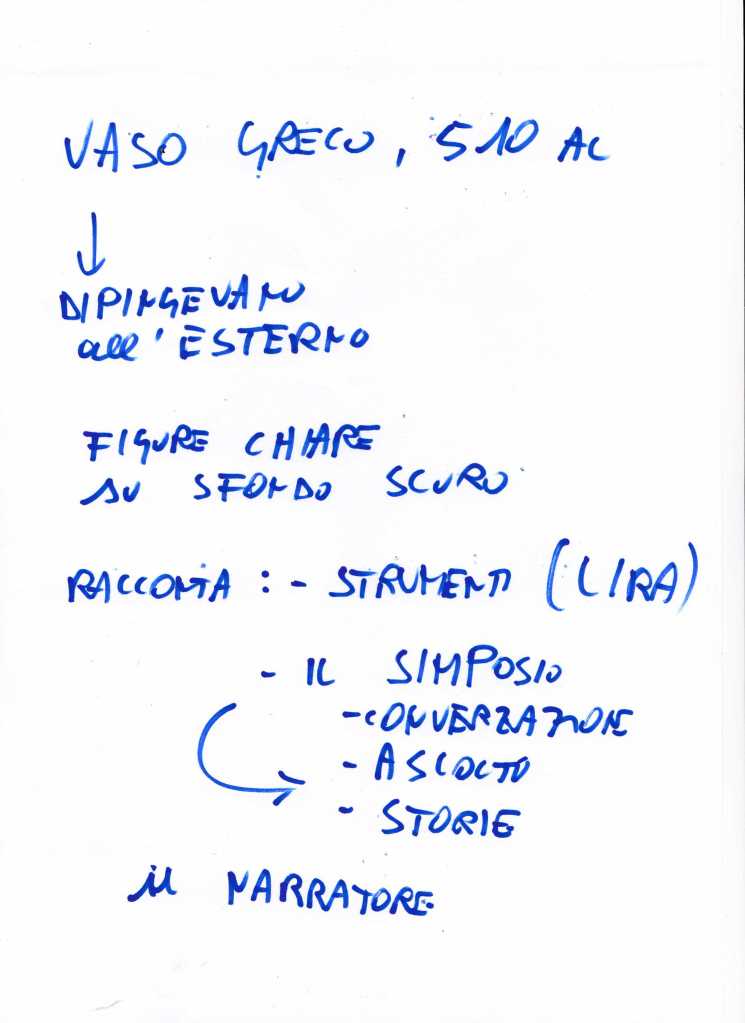 VASO GRECO, 510 AC
↓
DIPINGEVANO
all'ESTERNO
FIGURE CHIARE
su SFONDO SCURO
RACCONTA : - STRUMENTI (LIRA)
- IL SIMPOSIO
- CONVERZAZIONE
- ASCOLTO
- STORIE
il NARRATORE